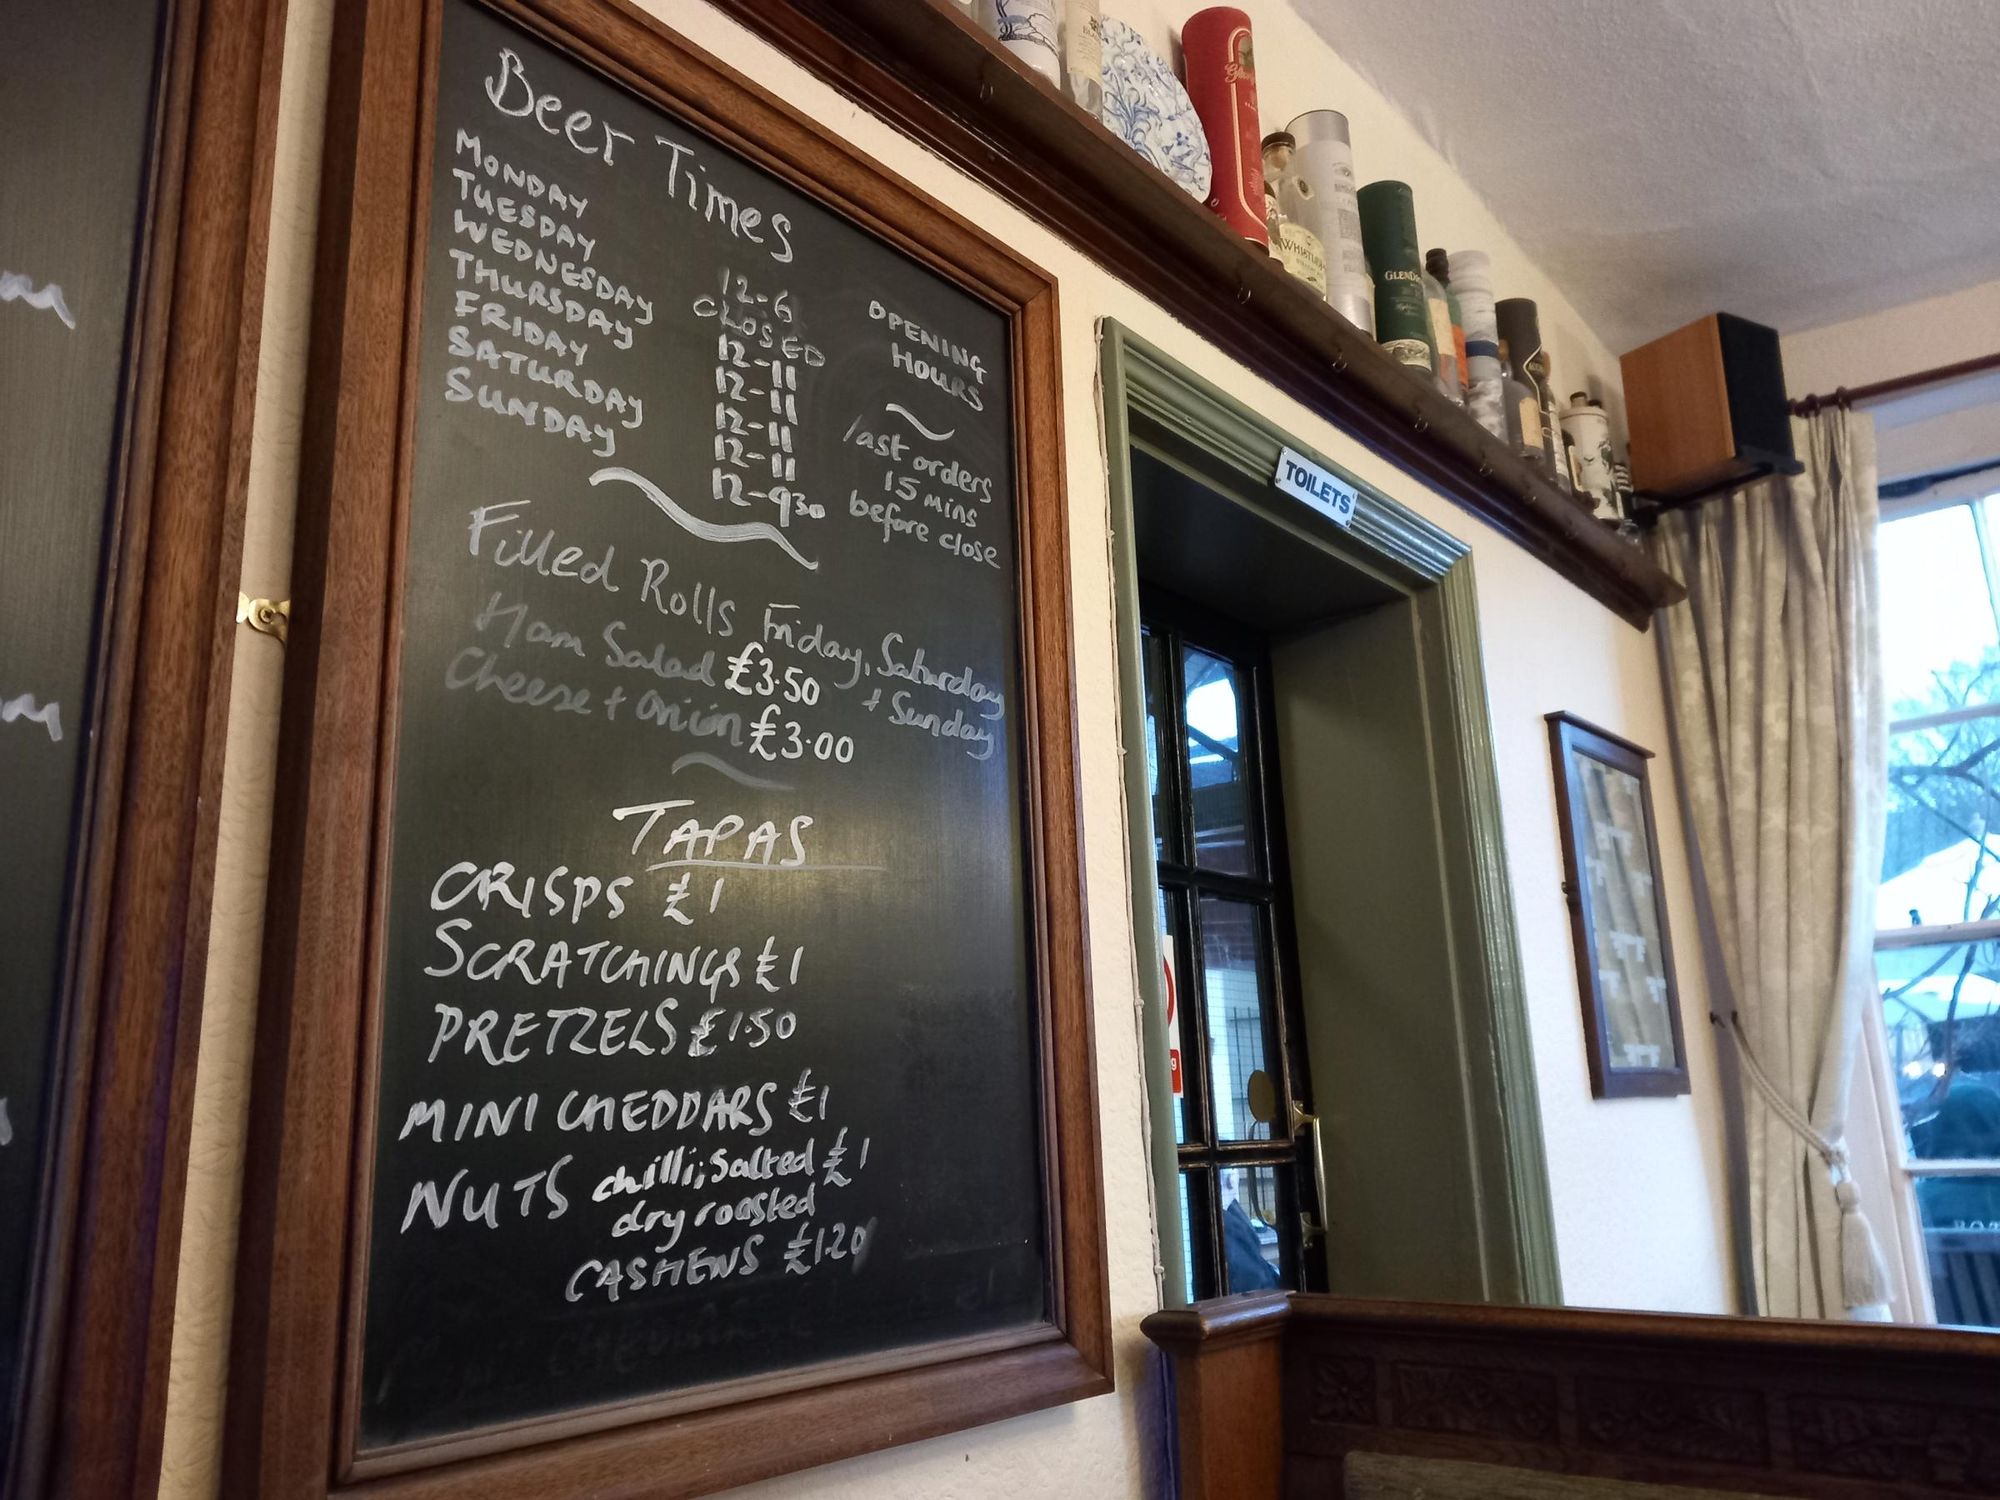 Beer Times
MONDAY 12-6
TUESDAY CLOSED
WEDNESDAY 12-11
THURSDAY 12-11
FRIDAY 12-11
SATURDAY 12-11
SUNDAY 12-930
OPENING
HOURS
last orders
15 mins
before close
Filled Rolls Friday, Saturday
+ Sunday
Ham Salad £3.50
Cheese + Onion £3.00
TAPAS
CRISPS £1
SCRATCHINGS £1
PRETZELS £1.50
MINI CHEDDARS £1
NUTS chilli; Salted £1
dry roasted
CASHEWS £1.20
TOILETS